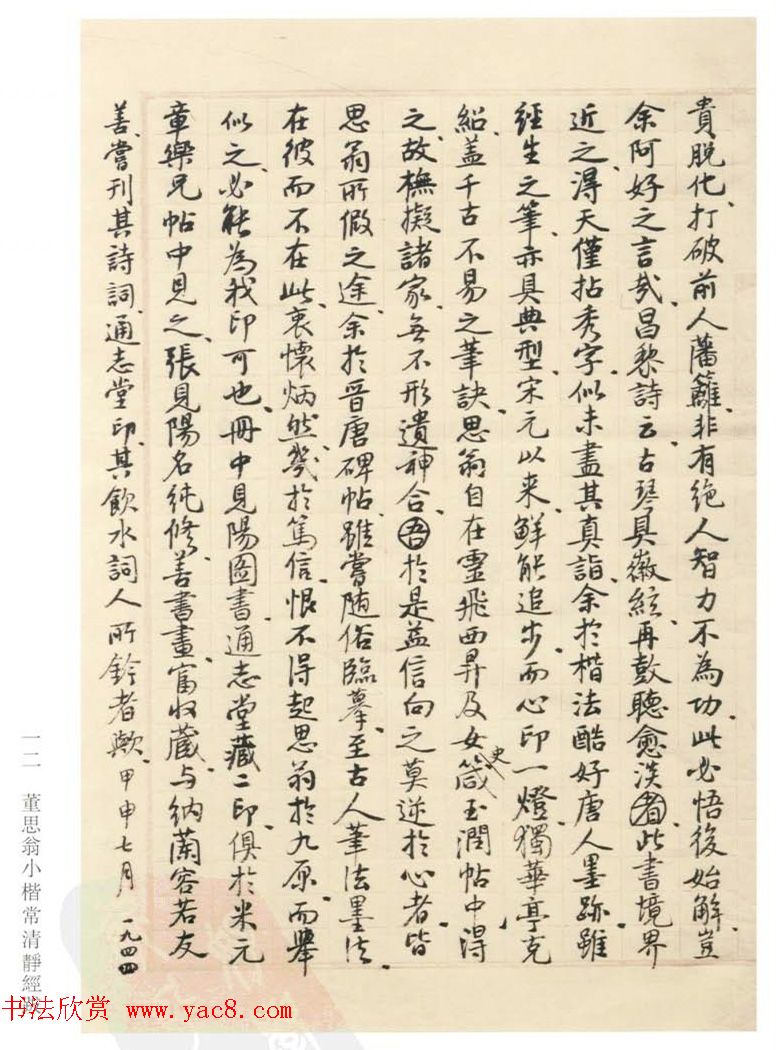 貴脫化、打破前人藩籬、非有絕人智力不為功、此必悟後始解、豈
余阿好之言哉、昌黎詩云、古琴具徽絃、再鼓聽愈淡者、此書境界
近之、淂天僅拈秀字、似未盡其真詣、余於楷法酷好唐人墨跡、雖
經生之筆、亦具典型、宋元以来、鮮能追步、而心印一燈、獨華亭克
紹、盖千古不易之筆訣、思翁自在靈飛西昇及女史箴玉潤帖中淂
之、故橅擬諸家、無不形遺神合、吾於是益信向之莫逆於心者、皆
思翁所假之途、余於晉唐碑帖、雖嘗随俗臨摹、至古人筆法墨法、
在彼而不在此、衷懷炳然、幾於篤信、恨不得起思翁於九原、而舉
似之、必能為我印可也、冊中見陽圖書、通志堂藏二印、俱於米元
章樂兄帖中見之、張見陽名純修、善書畫、富收藏、与納蘭容若友
善、嘗刊其詩詞、通志堂印、其飲水詞人所鈐者歟、甲申七月 一九四四
一二 董思翁小楷常清靜經跋
书法欣赏 www.yac8.com